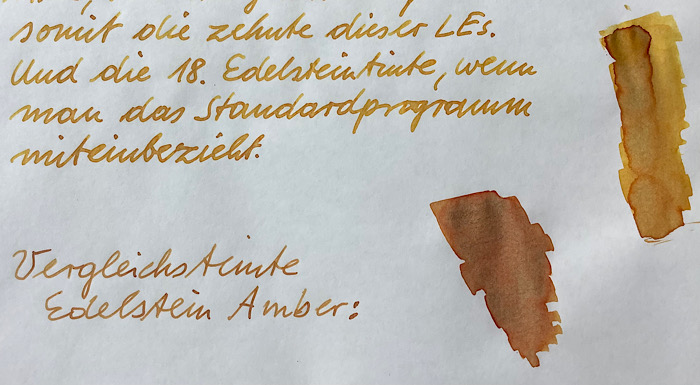 somit die zehnte dieser LEs.
Und die 18. Edelsteintinte, wenn
man das Standardprogramm
miteinbezieht.
Vergleichstinte
Edelstein Amber: